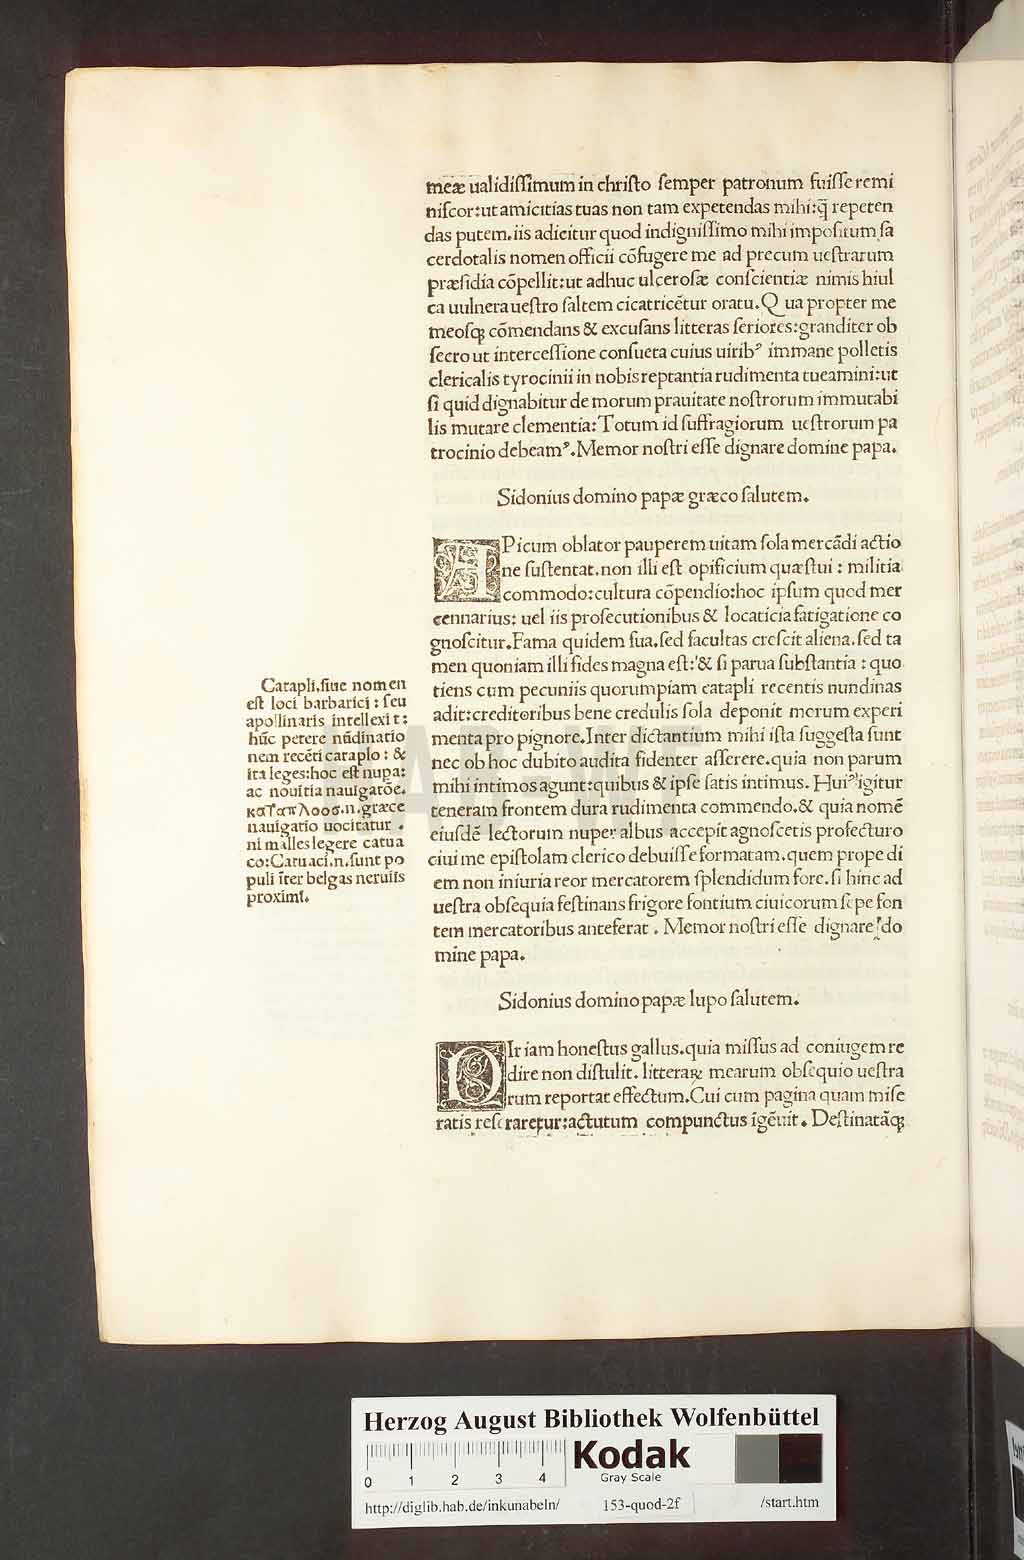 meæ ualidiſſimum in chriſto ſemper patronum fuiſſe remi
niſcor:ut amicitias tuas non tam expetendas mihi:q̃ repeten
das putem.iis adicitur quod indigniſſimo mihi impoſitum ſa
cerdotalis nomen officii cõfugere me ad precum ueſtrarum
præſidia cõpellit:ut adhuc ulceroſæ conſcientiæ nimis hiul
ca uulnera ueſtro ſaltem cicatricẽtur oratu.Q ua propter me
meoſqꝫ cõmendans & excuſans litteras ſeriores:granditer ob
ſecro ut interceſſione conſueta cuius uiribꝰ immane polletis
clericalis tyrocinii in nobis reptantia rudimenta tueamini:ut
ſi quid dignabitur de morum prauitate noſtrorum immutabi
lis mutare clementia:Totum id ſuffragiorum ueſtrorum pa
trocinio debeamꝰ.Memor noſtri eſſe dignare domine papa.
Sidonius domino papæ græco ſalutem.
APicum oblator pauperem uitam ſola mercãdi actio
ne ſuſtentat.non illi eſt opificium quæſtui : militia
commodo:cultura cõpendio:hoc ipſum quod mer
cennarius: uel iis proſecutionibus & locaticia fatigatione co
gnoſcitur.Fama quidem ſua.ſed facultas creſcit aliena.ſed ta
men quoniam illi fides magna eſt:& ſi parua ſubſtantia : quo
tiens cum pecuniis quorumpiam catapli recentis nundinas
adit:creditoribus bene credulis ſola deponit morum experi
menta pro pignore.Inter dictantium mihi iſta ſuggeſta ſunt
nec ob hoc dubito audita fidenter aſſerere.quia non parum
mihi intimos agunt:quibus & ipſe ſatis intimus. Huiꝰ igitur
teneram frontem dura rudimenta commendo.& quia nomẽ
eiuſdẽ lectorum nuper albus accepit agnoſcetis profecturo
ciui me epiſtolam clerico debuiſſe formatam.quem prope di
em non iniuria reor mercatorem ſplendidum fore.ſi hinc ad
ueſtra obſequia feſtinans frigore fontium ciuicorum ſepe fon
tem mercatoribus anteferat . Memor noſtri eſſe dignare do
mine papa.
Catapli.ſiue nomen
eſt loci barbarici : ſeu
apollinaris intellexit :
hũc petere nũdinatio
nem recẽti cataplo : &
ita leges:hoc eſt nupa:
ac nouitia nauigatõe.
καταπλοοσ.n.græce
nauigatio uocitatur .
ni malles legere catua
co:Catuaci.n.ſunt po
puli ĩter belgas neruiis
proximi.
Sidonius domino papæ lupo ſalutem.
VIr iam honeſtus gallus.quia miſſus ad coniugem re
dire non diſtulit. litteraꝝ mearum obſequio ueſtra
rum reportat effectum.Cui cum pagina quam miſe
ratis reſeraretur:actutum compunctus ĩgẽuit. Deſtinatãqꝫ
Herzog August Bibliothek Wolfenbüttel
0 1 2 3 4 Kodak
Gray Scale
http://diglib.hab.de/inkunabeln/ 153-quod-2f /start.htm
HAB-WF